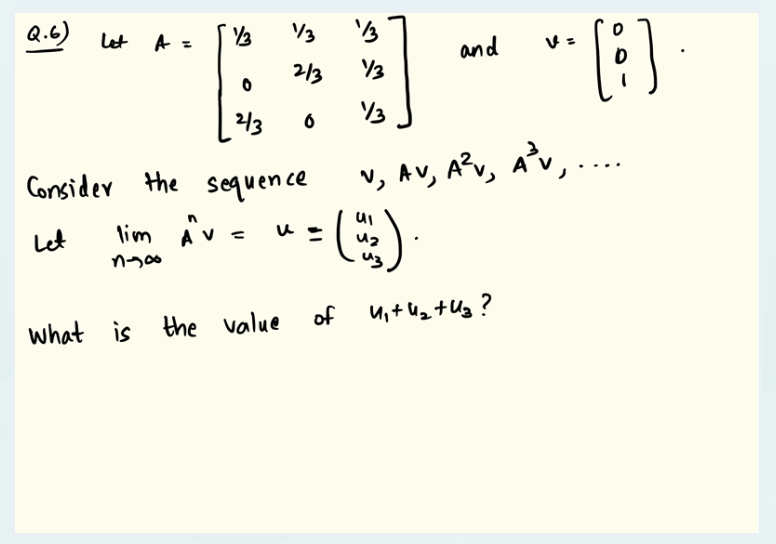 Q.6) Let A = [ 1/3 1/3 1/3 ; 0 2/3 1/3 ; 2/3 0 1/3 ] and v = [ 0 ; 0 ; 1 ] .
Consider the sequence v, Av, A²v, A³v, ....
Let lim n→∞ Aⁿv = u = ( u₁ ; u₂ ; u₃ ) .
What is the value of u₁+u₂+u₃?